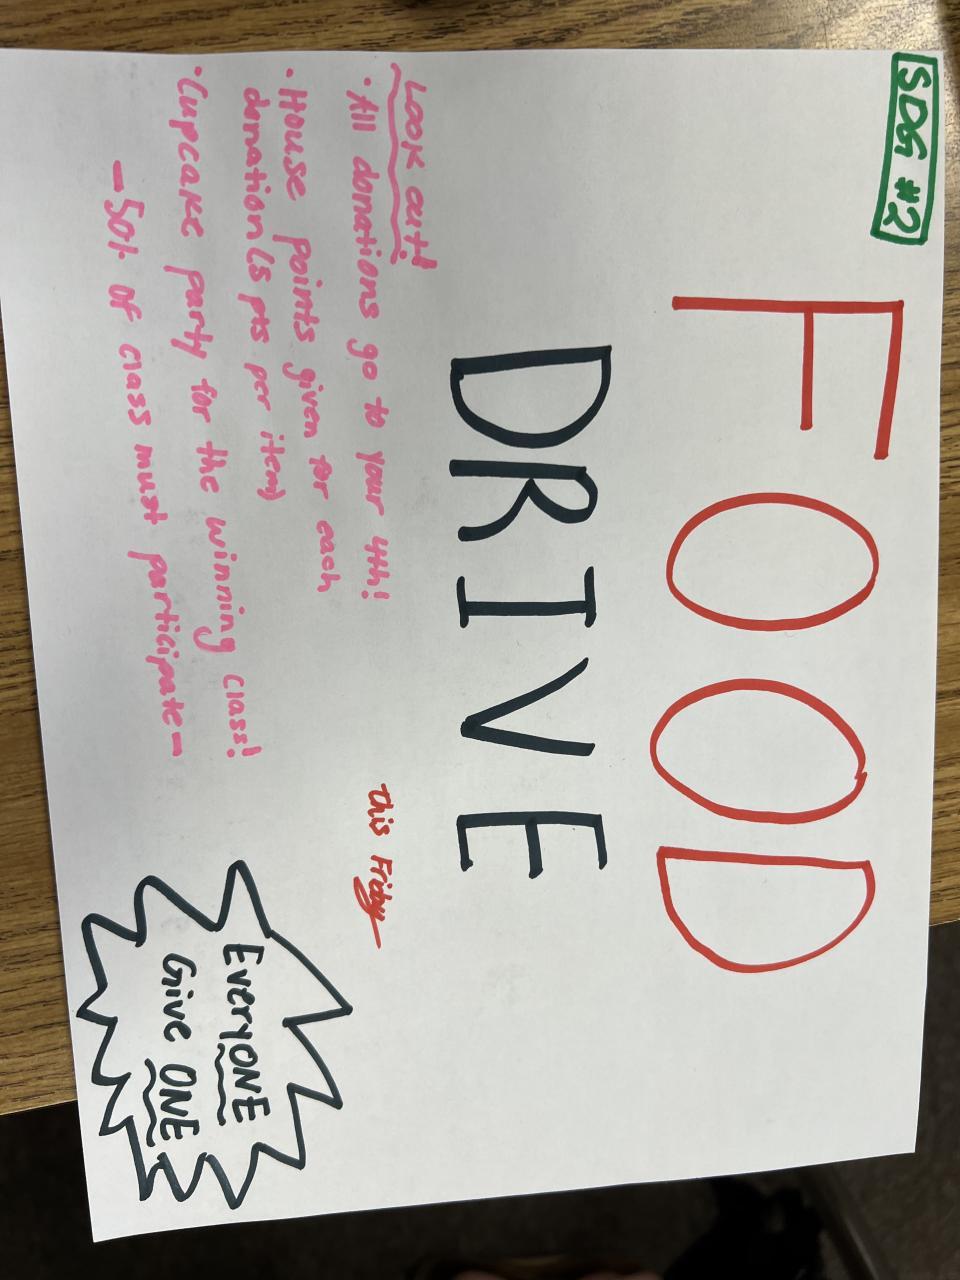 SDG #2
FOOD
DRIVE
Look out!
• All donations go to your 4th!
• House points given for each
donation (5 pts per item)
• Cupcake party for the winning class!
- 50% of class must participate -
this Friday
EveryONE
Give ONE